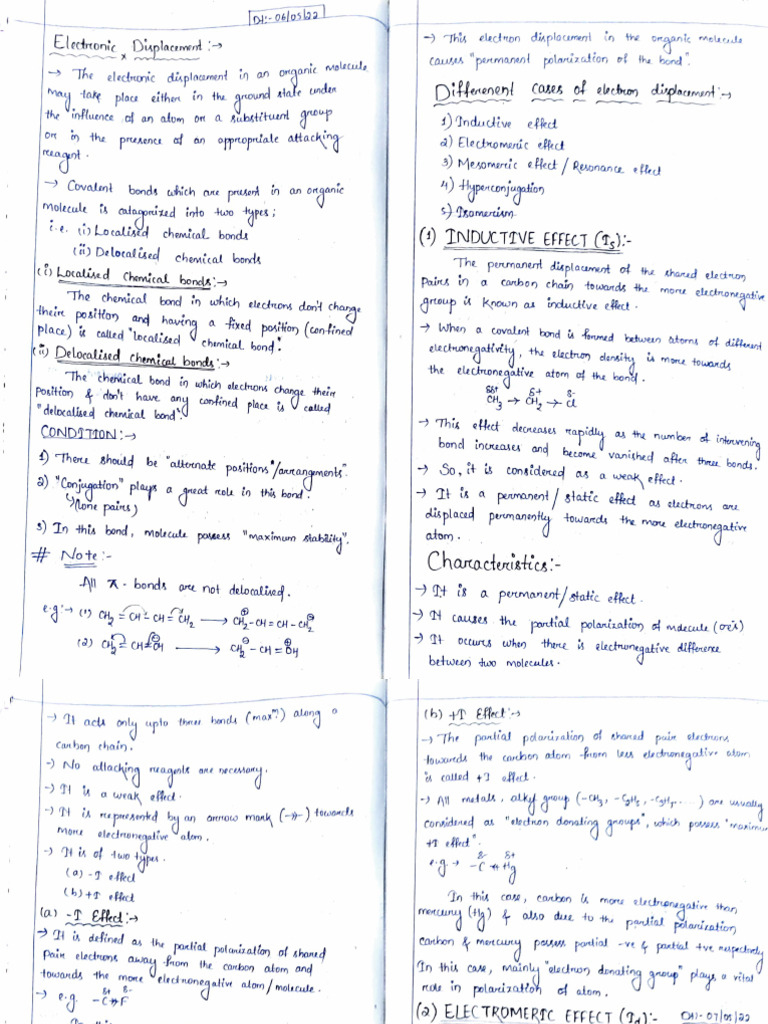 Dt:-06/05/22
Electronic Displacement:→
→ The electronic displacement in an organic molecule
may take place either in the ground state under
the influence of an atom or a substituent group
or in the presence of an appropriate attacking
reagent.
→ Covalent bonds which are present in an organic
molecule is catagorized into two types;
i.e. (i) Localised chemical bonds
(ii) Delocalised chemical bonds
(i) Localised chemical bonds:→
The chemical bond in which electrons don't change
their position and having a fixed position (confined
place) is called "localised chemical bond".
(ii) Delocalised chemical bonds:→
The chemical bond in which electrons change their
position & don't have any confined place is called
"delocalised chemical bond".
CONDITION:→
1) There should be "alternate positions"/arrangments".
2) "Conjugation" plays a great role in this bond.
↳(lone pairs)
3) In this bond, molecule possess "maximum stability".
# Note:-
All π-bonds are not delocalised.
e.g:→ (1) CH2 = CH - CH = CH2 ⟶ CH2⊕ - CH = CH - CH2⊖
(2) CH2 = CH - OH ⟶ CH2⊖ - CH = OH⊕
→ This electron displacement in the organic molecule
causes "permanent polarization of the bond".
Differenent cases of electron displacement:→
1) Inductive effect
2) Electromeric effect
3) Mesomeric effect / Resonance effect
4) Hyperconjugation
5) Isomerism
(1) INDUCTIVE EFFECT (Is):-
The permanent displacement of the shared electron
pairs in a carbon chain towards the more electronegative
group is known as inductive effect.
→ When a covalent bond is formed between atoms of different
electronegativity, the electron density is more towards
the electronegative atom of the bond.
δδ+ δ+ δ-
CH3 → CH2 → Cl
→ This effect decreases rapidly as the number of intervening
bond increases and become vanished after three bonds.
→ So, it is considered as a weak effect.
→ It is a permanent/static effect as electrons are
displaced permanently towards the more electronegative
atom.
Characteristics:-
→ It is a permanent/static effect.
→ It causes the partial polarization of molecule (σe's)
→ It occurs when there is electronegative difference
between two molecules.
→ It acts only upto three bonds (maxm) along a
carbon chain.
→ No attacking reagents are necessary.
→ It is a weak effect.
→ It is represented by an arrow mark (→) towards
more electronegative atom.
→ It is of two types.
(a) -I effect
(b) +I effect
(a) -I Effect:→
→ It is defined as the partial polarization of shared
pair electrons away from the carbon atom and
towards the more electronegative atom/molecule.
→ e.g. δ+ δ-
-C→F
(b) +I Effect:→
→ The partial polarization of shared pair electrons
towards the carbon atom from less electronegative atom
is called +I effect.
→ All metals, alkyl group (-CH3, -C2H5, -C3H7.....) are usually
considered as "electron donating groups", which possess "maximum
+I effect".
e.g → δ- δ+
-C ← Hg
In this case, carbon is more electronegative than
mercury (Hg) & also due to the partial polarization
carbon & mercury possess partial -ve & partial +ve respectively
In this case, mainly "electron donating group" plays a vital
role in polarization of atom.
(2) ELECTROMERIC EFFECT (Id):- Dt:-07/05/22